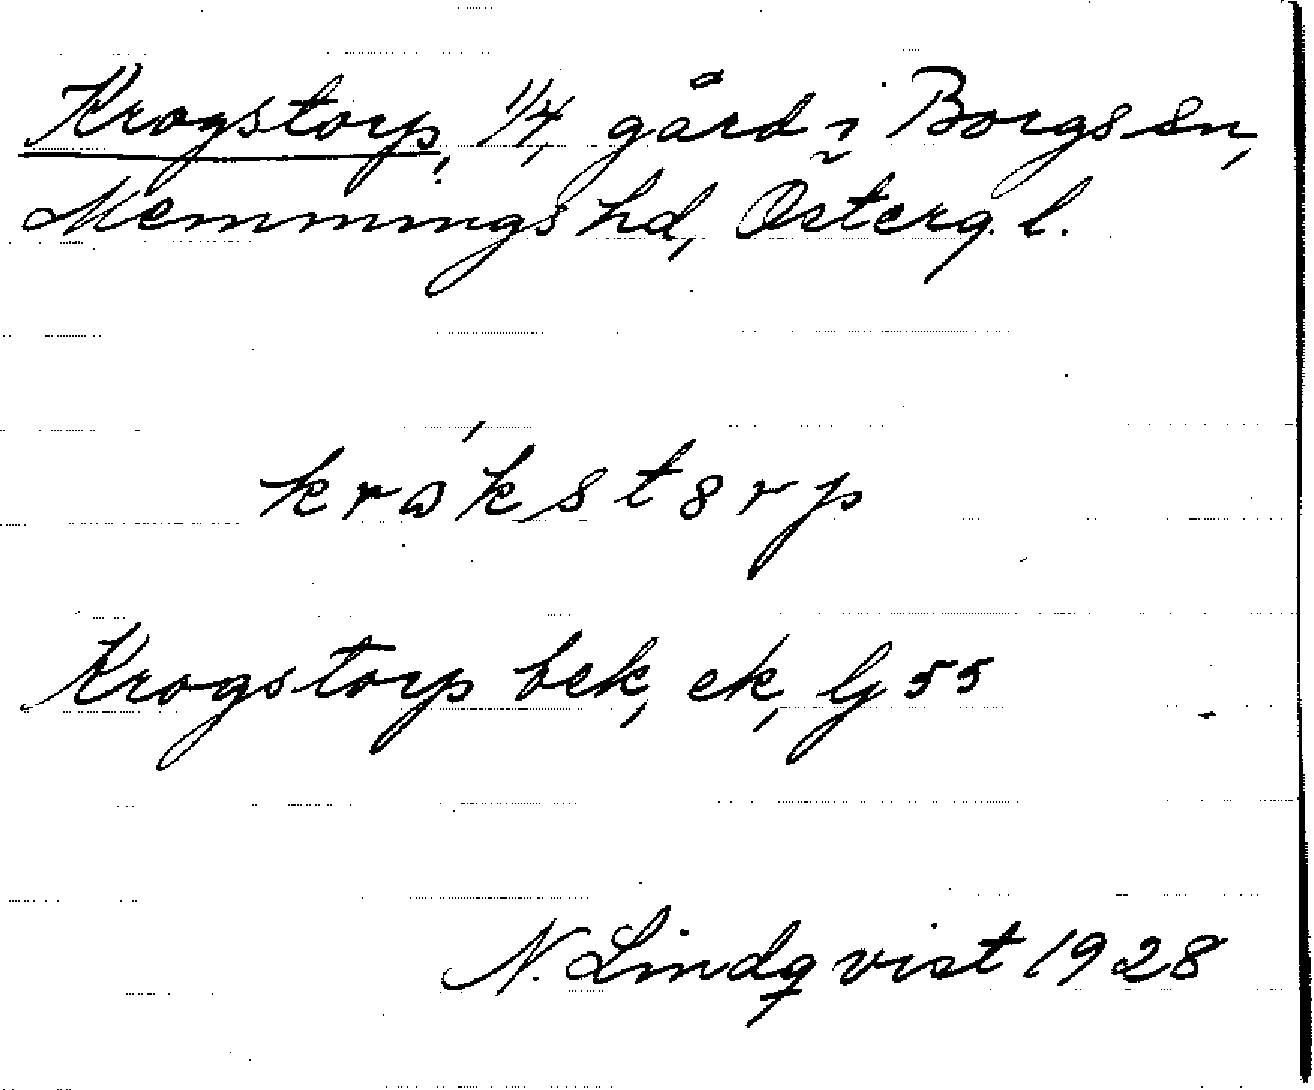 Krogstorp, 1/4, gård i Borgs sn,
Memmings hd, Österg. l.
kråkstorp
Krogstorp bek, ek, Gj 55
N. Lindqvist 1928